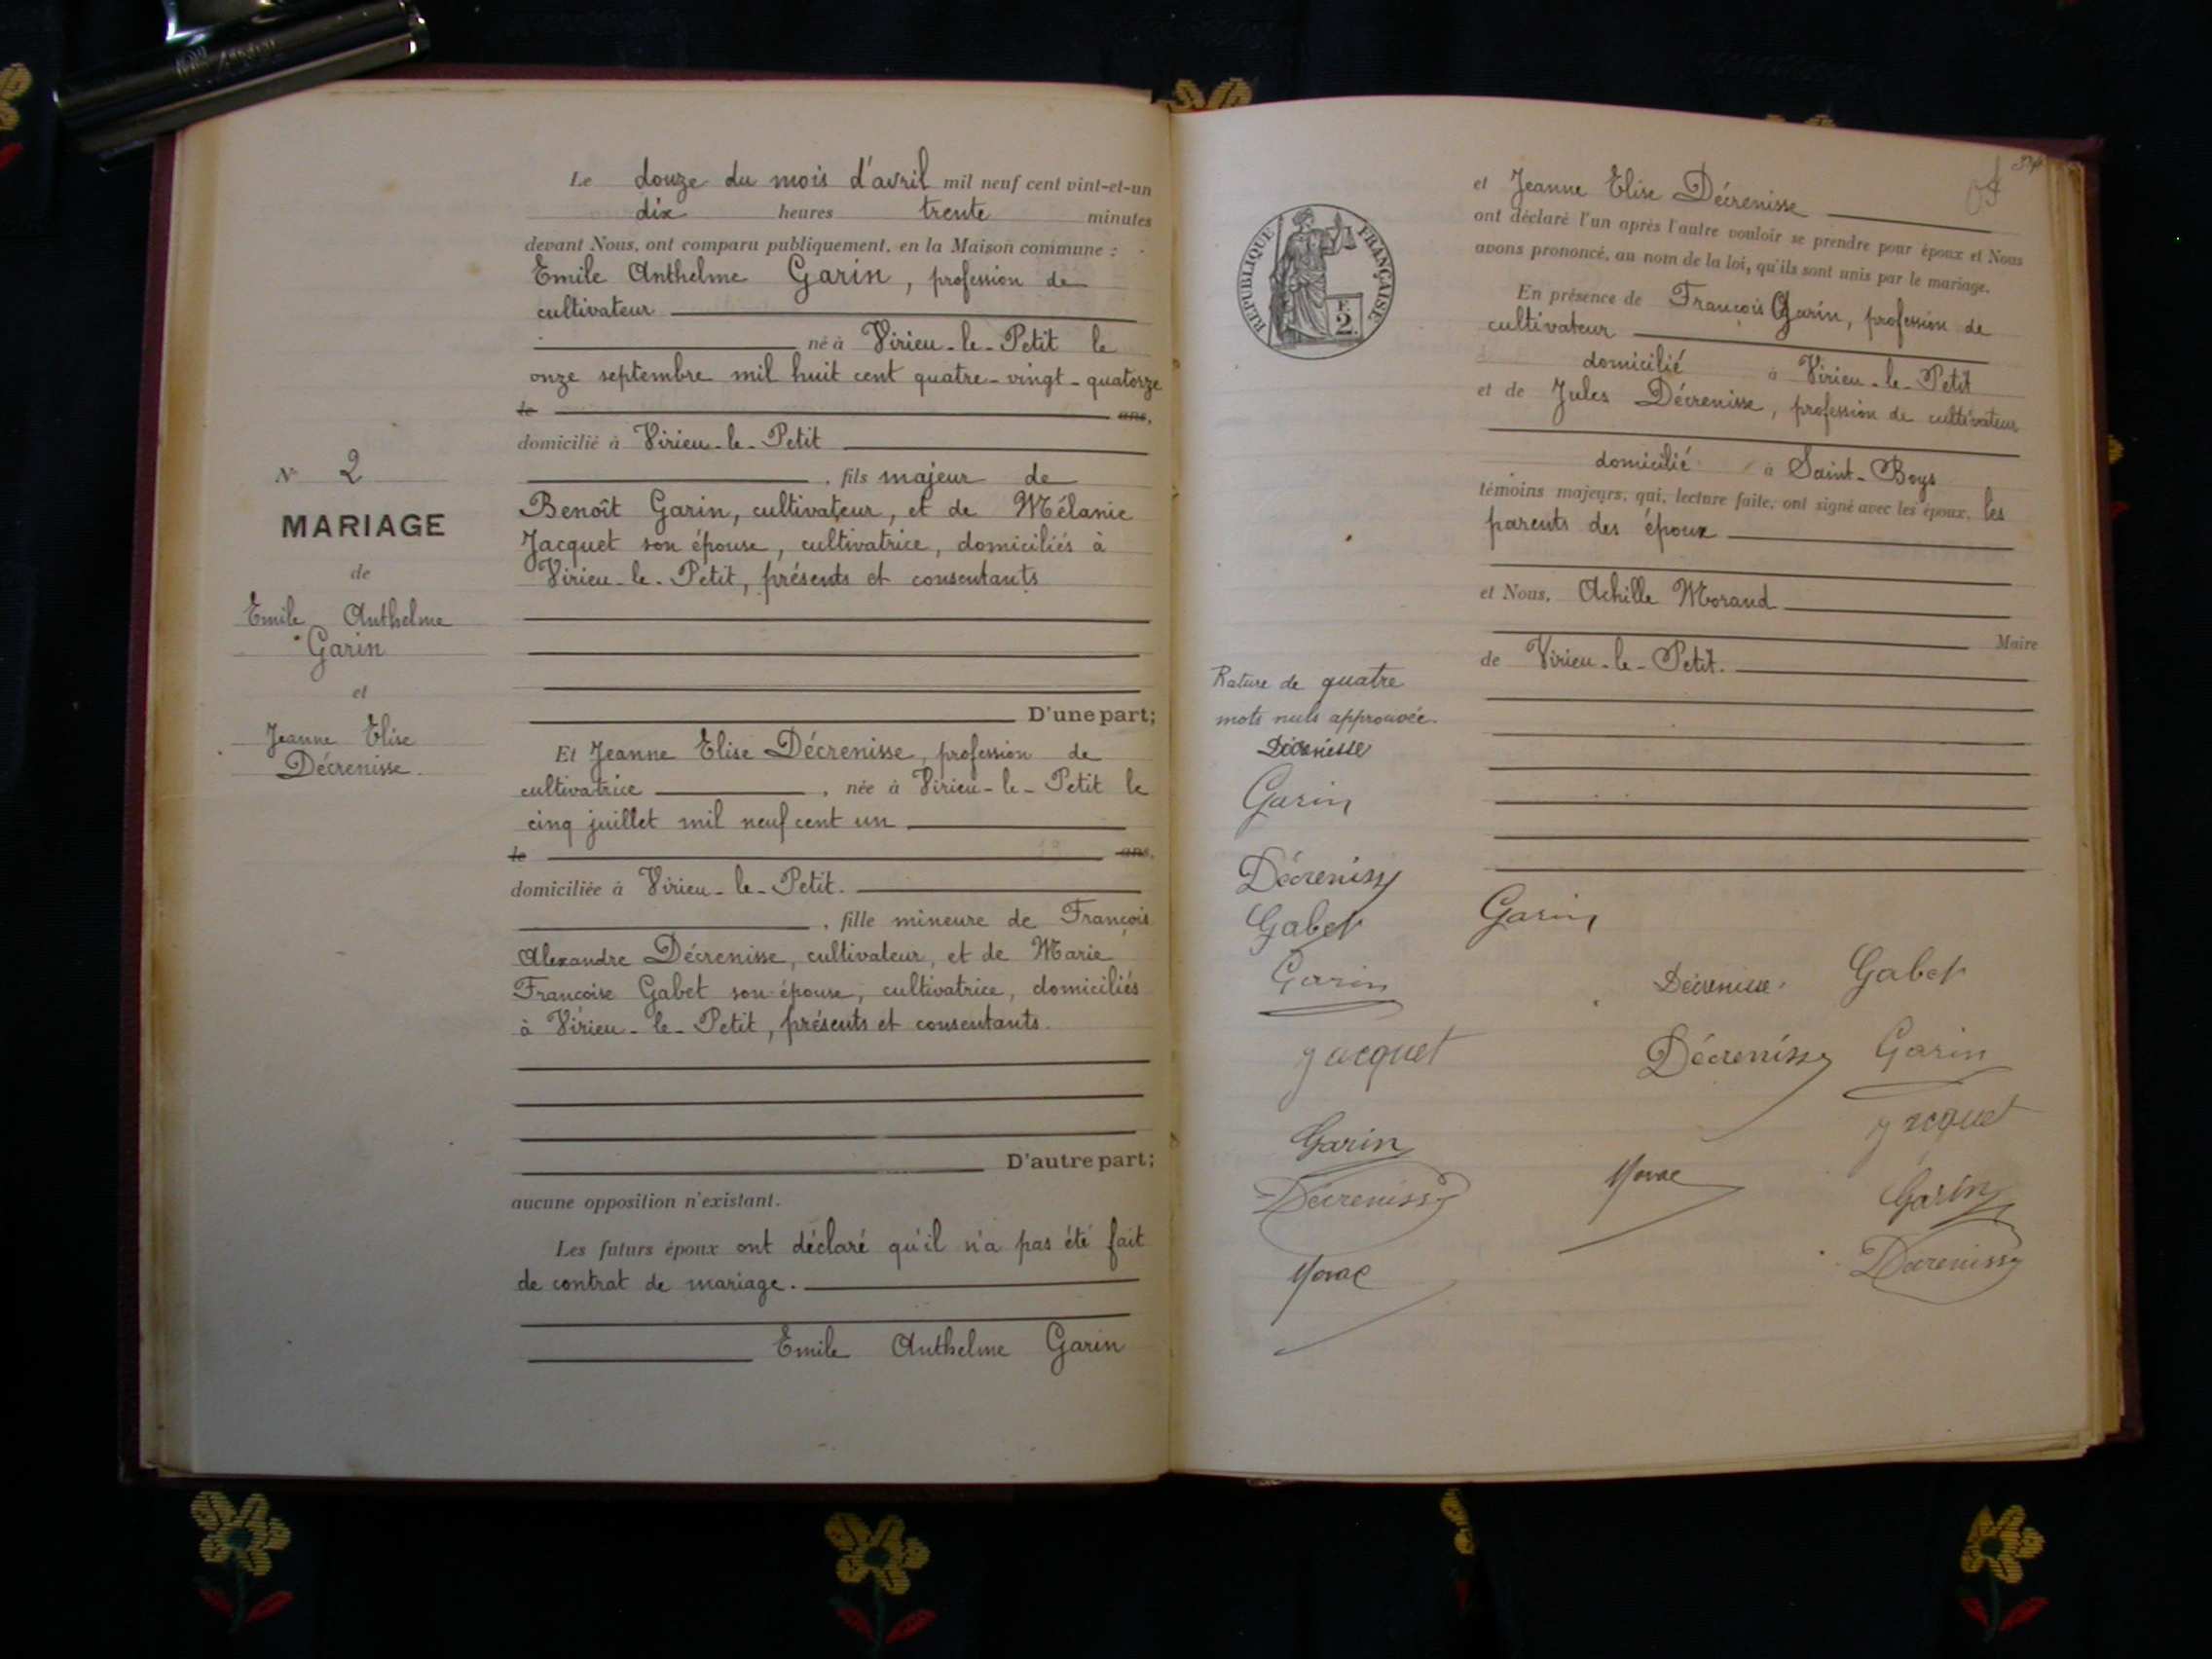 N° 2
MARIAGE
de
Emile Anthelme
Garin
et
Jeanne Elise
Décrenisse.
Le douze du mois d'avril mil neuf cent vint-et-un
dix heures trente minutes
devant Nous, ont comparu publiquement, en la Maison commune :
Emile Anthelme Garin, profession de
cultivateur
né à Virieu-le-Petit le
onze septembre mil huit cent quatre-vingt-quatorze
le ans,
domicilié à Virieu-le-Petit
, fils majeur de
Benoît Garin, cultivateur, et de Mélanie
Jacquet son épouse, cultivatrice, domiciliés à
Virieu-le-Petit, présents et consentants
D'une part;
Et Jeanne Elise Décrenisse, profession de
cultivatrice , née à Virieu-le-Petit le
cinq juillet mil neuf cent un
le ans,
domiciliée à Virieu-le-Petit.
, fille mineure de François
Alexandre Décrenisse, cultivateur, et de Marie
Françoise Gabet son épouse, cultivatrice, domiciliés
à Virieu-le-Petit, présents et consentants.
D'autre part;
aucune opposition n'existant.
Les futurs époux ont déclaré qu'il n'a pas été fait
de contrat de mariage.
Emile Anthelme Garin
RÉPUBLIQUE FRANÇAISE
2
et Jeanne Elise Décrenisse
ont déclaré l'un après l'autre vouloir se prendre pour époux et Nous
avons prononcé, au nom de la loi, qu'ils sont unis par le mariage.
En présence de François Garin, profession de
cultivateur
domicilié à Virieu-le-Petit
et de Jules Décrenisse, profession de cultivateur
domicilié à Saint-Boys
témoins majeurs, qui, lecture faite, ont signé avec les époux, les
parents des époux
et Nous, Achille Morand
Maire
de Virieu-le-Petit.
Rature de quatre
mots nuls approuvée.
Décrenisse
Garin
Décrenisse
Gabet
Garin
Jacquet
Garin
Décrenisse
Garin
Décrenisse
Gabet
Décrenisse
Garin
Jacquet
Garin
Décrenisse